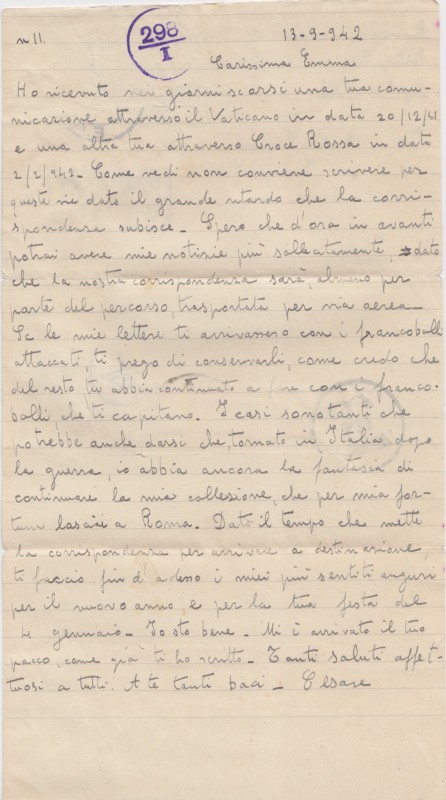 n 11.
298
I
13-9-942
Carissima Emma
Ho ricevuto nei giorni scorsi una tua comu-
nicazione attraverso il Vaticano in data 20/12/41
e una altra tua attraverso Croce Rossa in data
2/2/942 - Come vedi non conviene scrivere per
queste vie dato il grande ritardo che la corri-
spondenza subisce - Spero che d'ora in avanti
potrai avere mie notizie più sollecitamente, dato
che la nostra corrispondenza sarà, almeno per
parte del percorso, trasportata per via aerea -
Se le mie lettere ti arrivassero con i francobolli
attaccati, ti prego di conservarli, come credo che
del resto tu abbia continuato a con i franco-
bolli, che ti capitano. I casi sono tanti che
potrebbe anche darsi che, tornato in Italia dopo
la guerra, io abbia ancora la fantasia di
continuare la mia collezione, che per mia for-
tuna lasciai a Roma. Dato il tempo che mette
la corrispondenza per arrivare a destinazione,
ti faccio fin d'adesso i miei più sentiti auguri
per il nuovo anno, e per la tua festa del
4 gennaio - Io sto bene - Mi è arrivato il tuo
pacco, come già ti ho scritto - Tanti saluti affet-
tuosi a tutti. A te tanti baci - Cesare